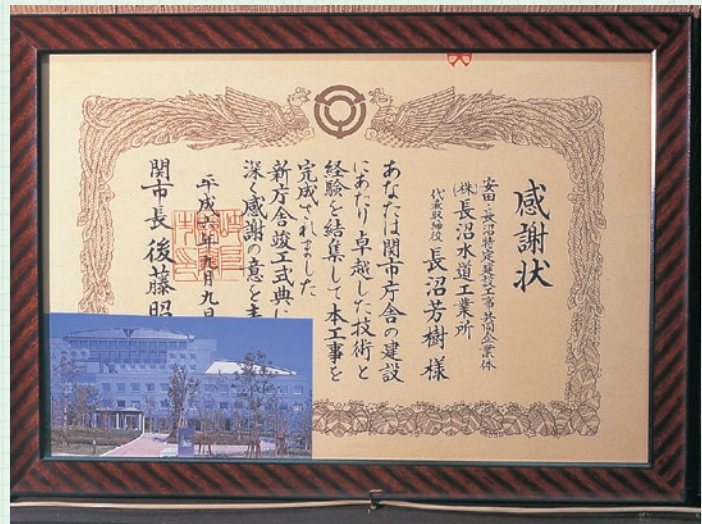 感謝状
安田・長沼特定建設工事共同企業体
(株)長沼水道工業所
代表取締役 長沼芳樹 様
あなたは関市庁舎の建設
にあたり卓越した技術と
経験を結集して本工事を
完成されました
新庁舎竣工式典に
深く感謝の意を表
平成六年九月九日
関市長 後藤昭